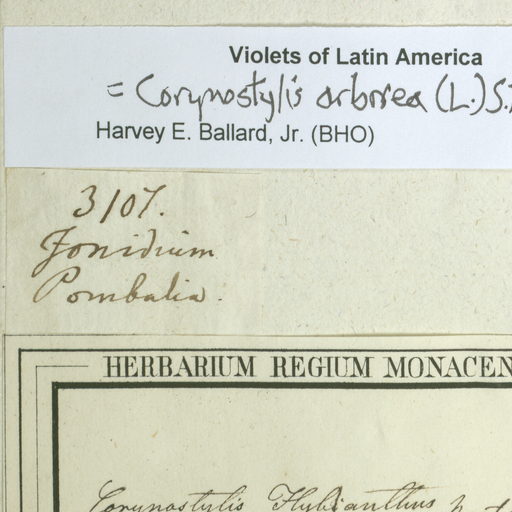 Violets of Latin America
= Corynostylis arborea (L.) S.
Harvey E. Ballard, Jr. (BHO)
3107.
Jonidium
Pombalia.
HERBARIUM REGIUM MONACEN
Corynostylis Hybanthus